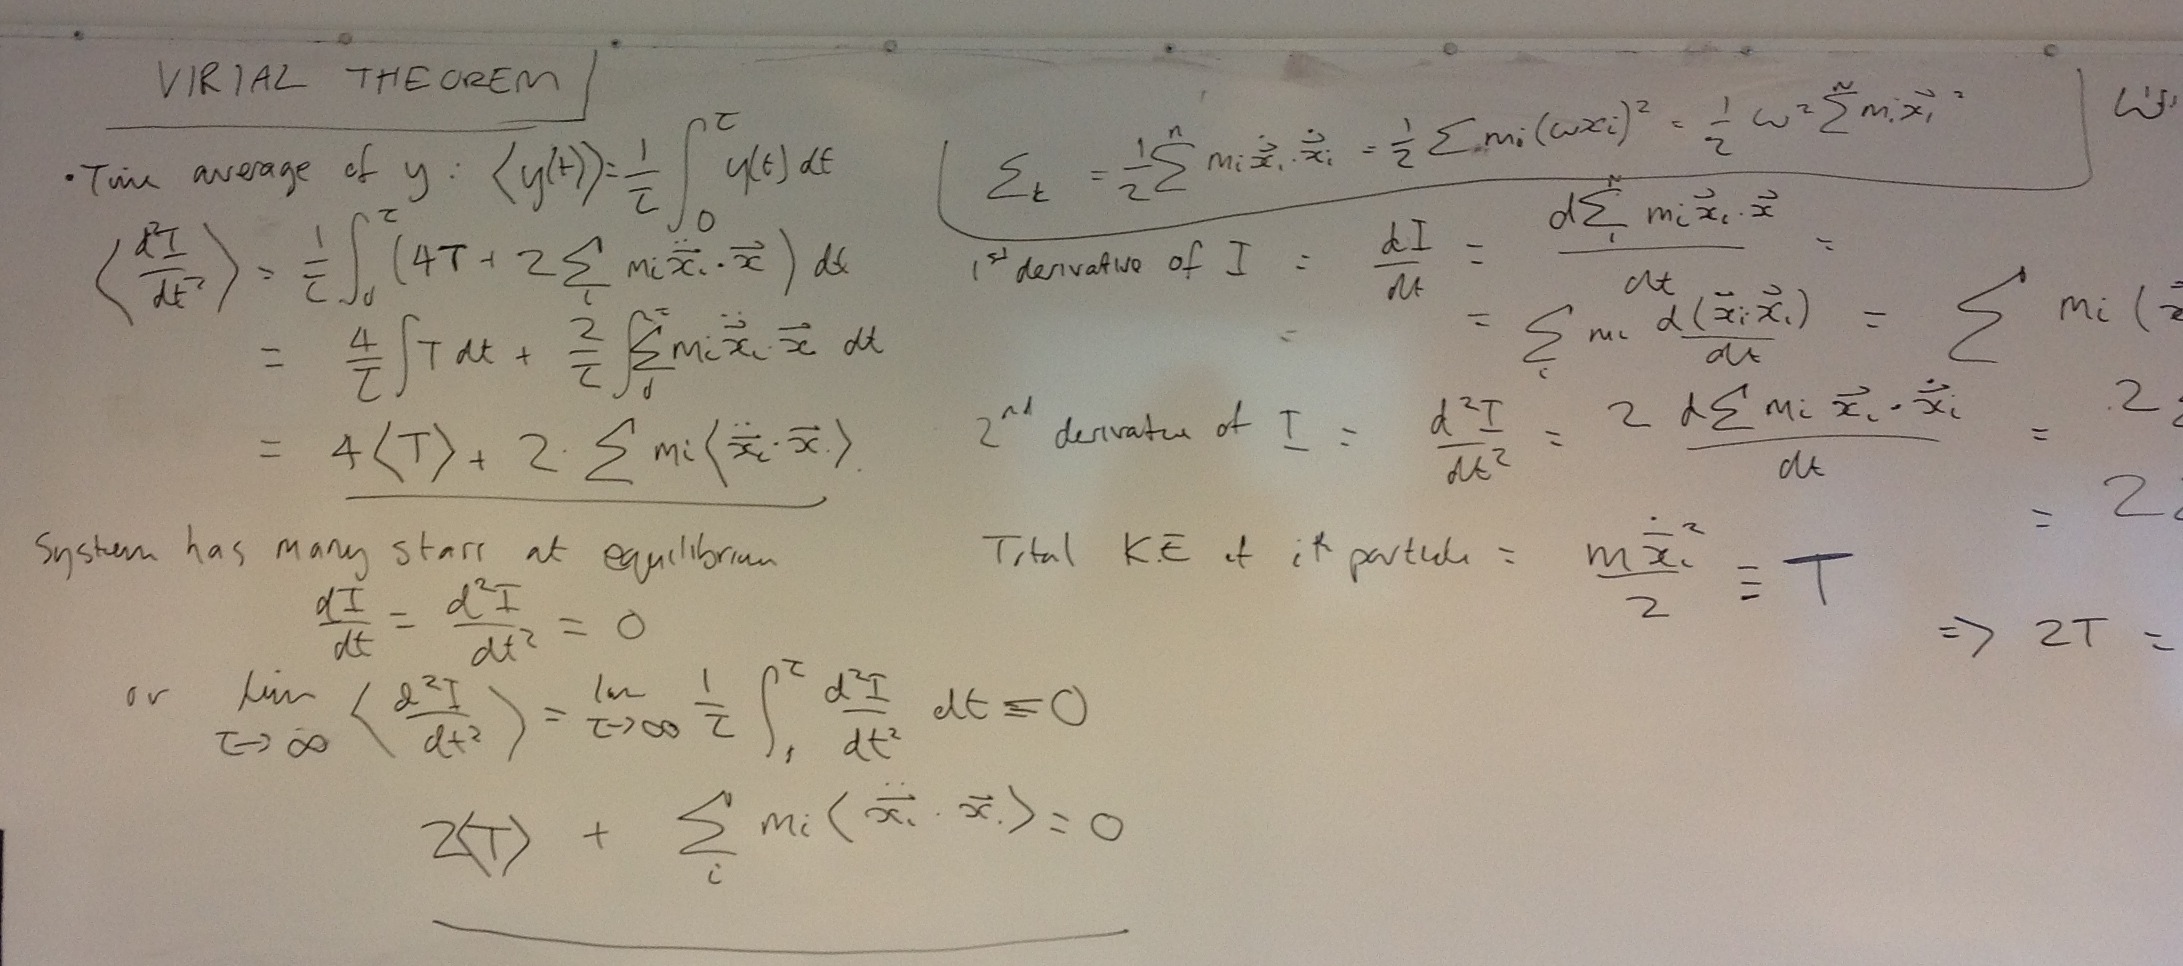 VIRIAL THEOREM
• Time average of y : ⟨y(t)⟩ = 1/τ ∫₀^τ y(t) dt
⟨d²I/dt²⟩ = 1/τ ∫₀^τ (4T + 2 Σᵢ mᵢ ẍ⃗ᵢ · x⃗) dt
= 4/τ ∫ T dt + 2/τ ∫ Σ mᵢ ẍ⃗ᵢ · x⃗ dt
= 4⟨T⟩ + 2 · Σ mᵢ ⟨ẍ⃗ᵢ · x⃗⟩
System has many stars at equilibrium
dI/dt = d²I/dt² = 0
or lim τ→∞ ⟨d²I/dt²⟩ = lim τ→∞ 1/τ ∫^τ d²I/dt² dt = 0
2⟨T⟩ + Σᵢ mᵢ ⟨ẍ⃗ᵢ · x⃗ᵢ⟩ = 0
Σ_t = 1/2 Σⁿ mᵢ ẋ⃗ᵢ · ẋ⃗ᵢ = 1/2 Σ mᵢ (ωxᵢ)² = 1/2 ω² Σᴺ mᵢ x⃗ᵢ²
1st derivative of I = dI/dt = d Σᵢᴺ mᵢ x⃗ᵢ · x⃗ / dt =
= Σᵢ mᵢ d(x⃗ᵢ · x⃗ᵢ)/dt = Σ mᵢ (
2nd derivative of I = d²I/dt² = 2 d Σ mᵢ x⃗ᵢ · ẋ⃗ᵢ / dt = 2
= 2
Total KE of ith particle = m ẋ⃗ᵢ²/2 ≡ T
=> 2T =